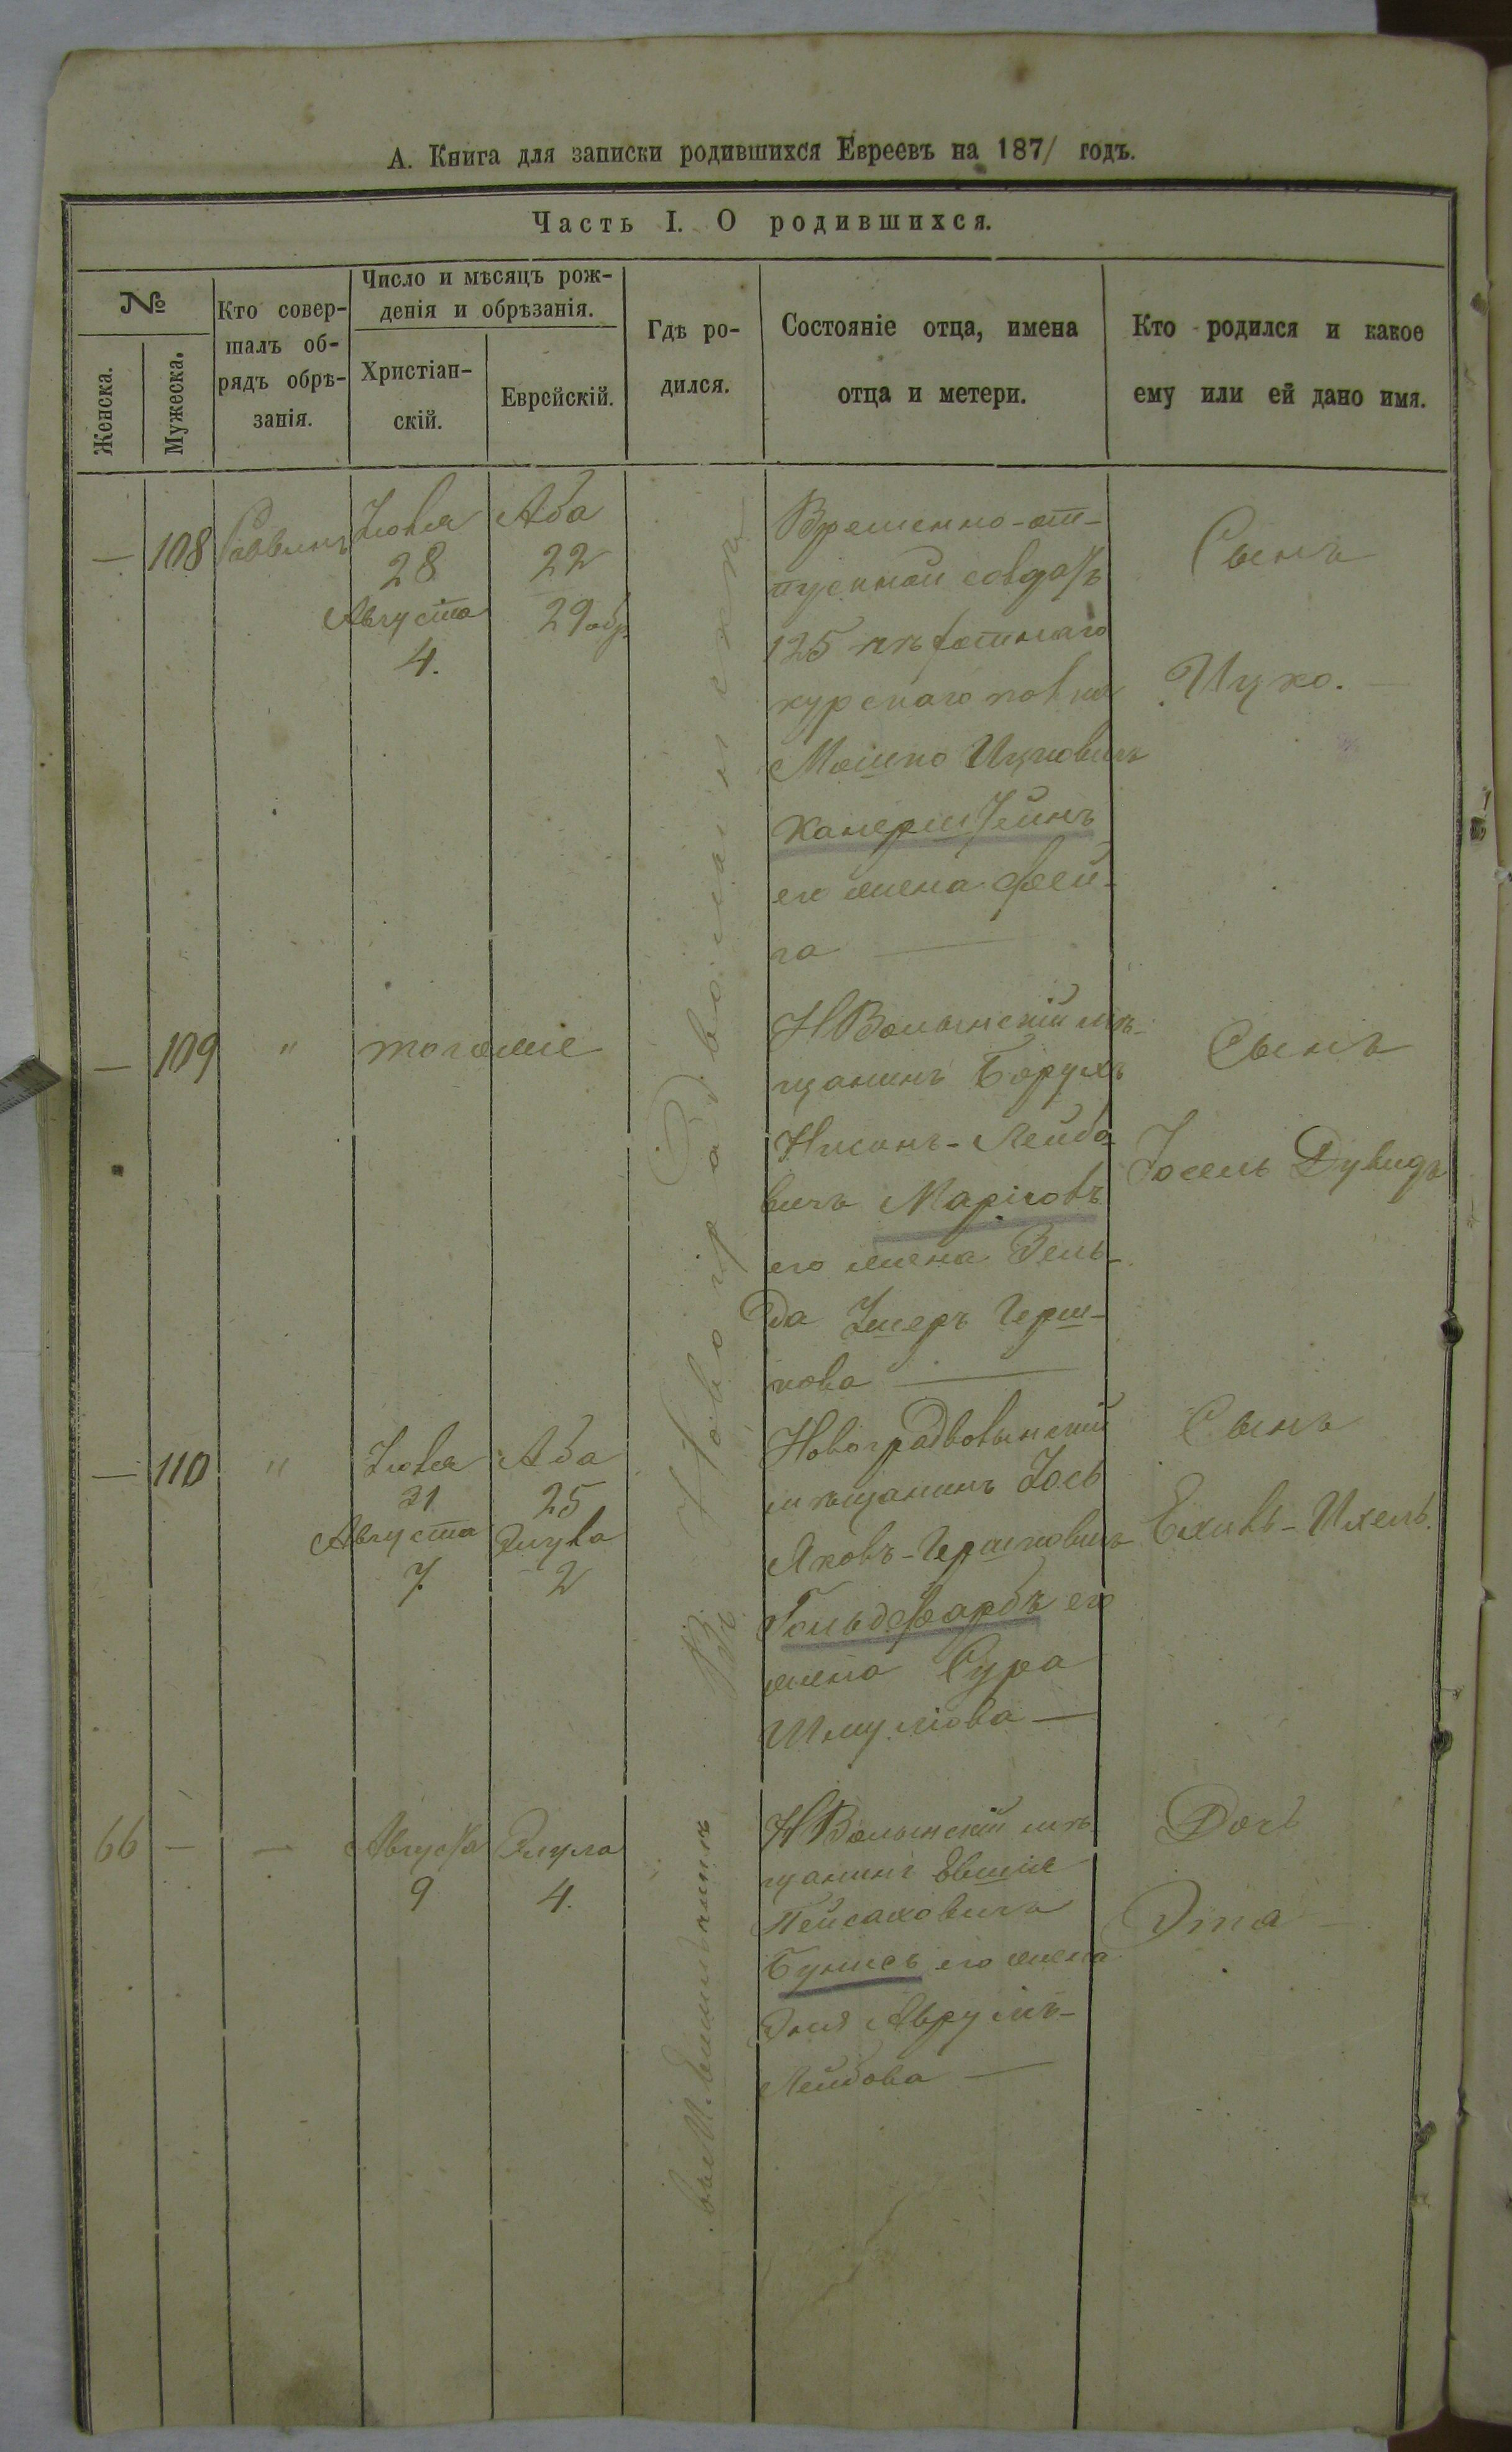 А. Книга для записки родившихся Евреевъ на 1871 годъ.
Часть I. О родившихся.
№
Женска.
Мужеска.
Кто совер-
шалъ об-
рядъ обрѣ-
занія.
Число и мѣсяцъ рож-
денія и обрѣзанія.
Христіан-
скій.
Еврейскій.
Гдѣ ро-
дился.
Состояніе отца, имена
отца и метери.
Кто родился и какое
ему или ей дано имя.
Въ Новоградволынскѣ
— 108 Раввинъ
Іюля
28
Августа
4.
Аба
22
29 обр.
Временно-от-
пускной солдатъ
125 пѣхотнаго
курскаго полка
Мошко Ицковичъ
Канерштейнъ
его жена Фей-
га —
Сынъ
Ицко. —
— 109 " тогоже
НВолынскій мѣ-
щанинъ Борухъ
Нисонъ-Лейбо
вичъ Маріговъ
его жена Зель-
да Эстеръ Герш-
кова —
Сынъ
Іосель Дувидъ
— 110 "
Іюля
31
Августа
7.
Аба
25
Элула
2
Новоградволынский
мѣщанинъ Іось
Яковъ-Гершковичъ
Гольдфарбъ его
жена Сура
Шмулiова —
Сынъ
Ехивъ-Ихель.
66 — —
Августа
9
Элула
4.
НВолынскій мѣ
щанинъ Овшiя
Пейсаховичъ
Бунисъ его жена
Эния Аврумъ-
Лейбова —
Дочь
Эта —